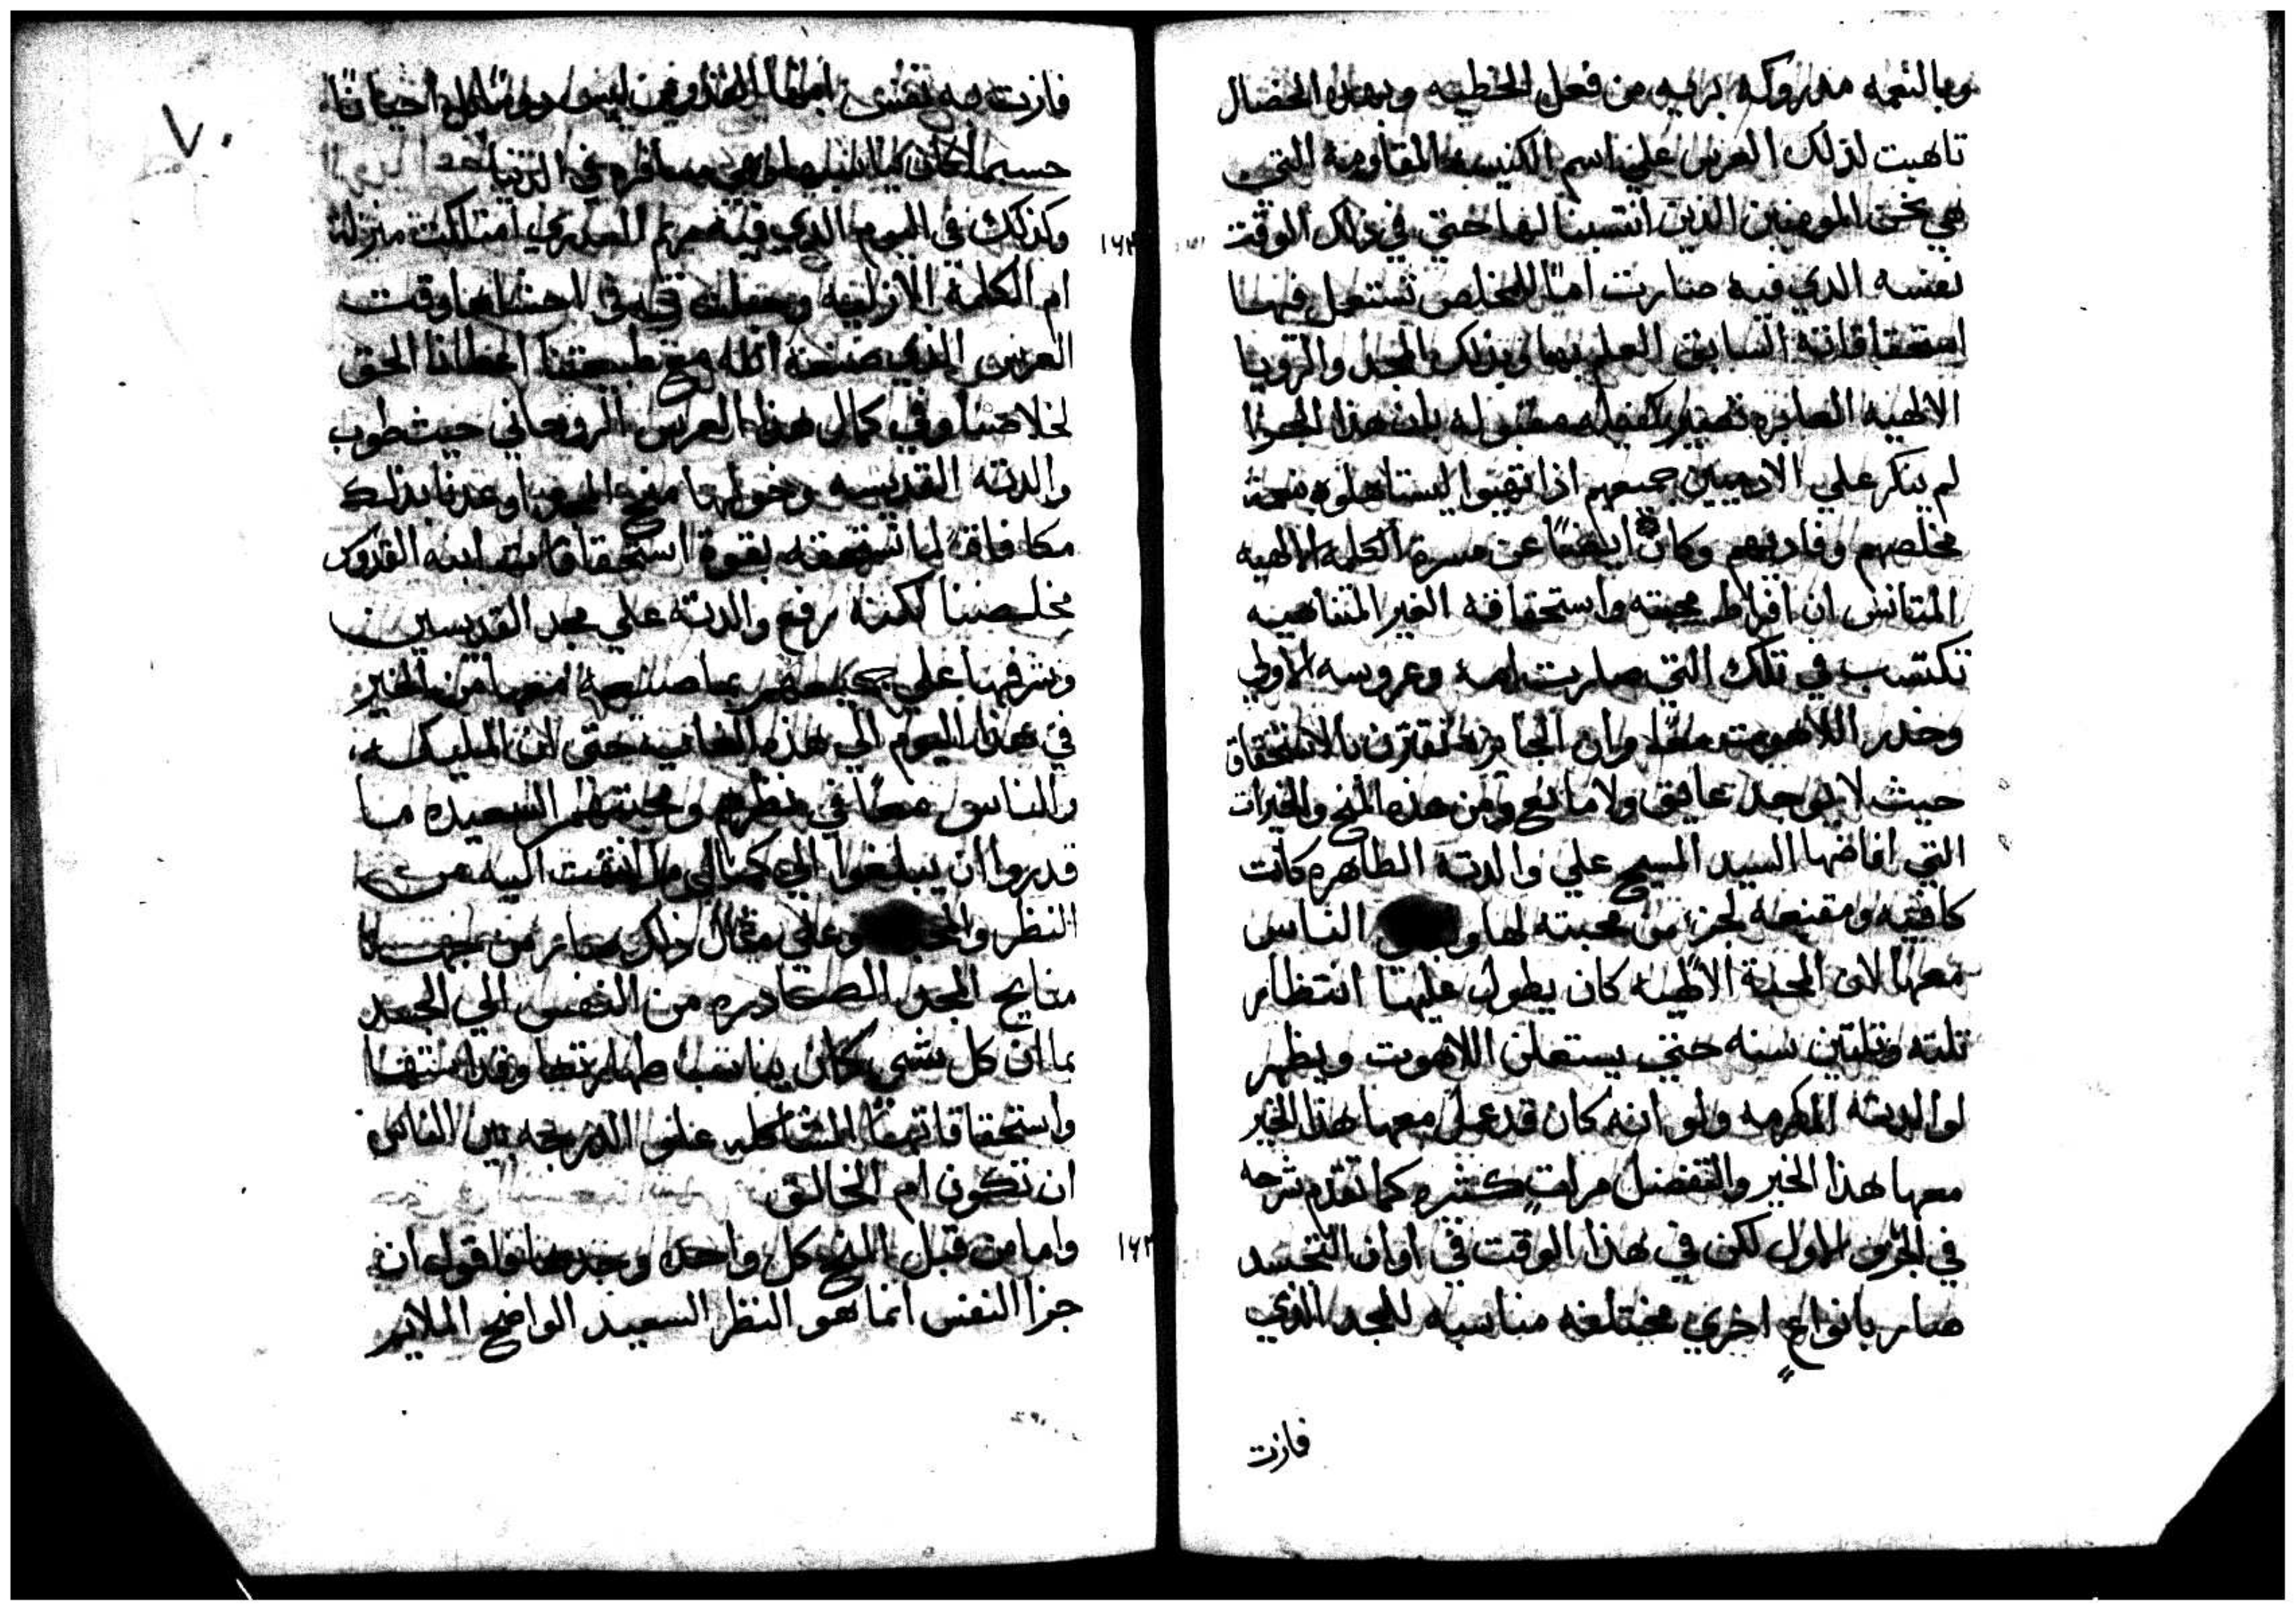 وبالنعمه مدروكه بريه من فعل الخطيه وبهذه الخصال
تاهبت لذلك العرس علي اسم الكنيسه المقاومه التي
هي نحن المومنين الذين انتسبنا لها حتي في ذلك الوقت
نفسه الذي فيه صارت اما للمخلص تستعمل فيها
استحقاقاته السابق العلم بها وبذلك المجد والرويا
الالهيه العابره تصير كفيله مقبوله بان هذا الجزا
لم ينكر علي الادميين جميعهم اذا تهيوا ليستاهلوه بنعمة
مخلصهم وفاديهم وكان ايضا عن مسرة الكلمه الالهيه
المتانس ان افراط محبته واستحقاقه الغير المتناهيه
تكتسب في تلك التي صارت امه وعروسه الاولي
وخدر اللاهوت معا وان الجايزه تقترن بالاستحقاق
حيث لا يوجد عايق ولا مانع ومن هذه المنح والخيرات
التي افاضها السيد المسيح علي والدته الطاهره كانت
كافيه ومقنعه لجز من محبته لها الناس
معها لان المحبة الالهيه كان يطول عليها انتظار
تلته وتلتين سنه حتي يستعلن اللاهوت ويظهر
لوالدته المكرمه ولو انه كان قد عمل معها هذا الخير
معها هذا الخير والتفضل مرات كثيره كما تقدم شرحه
في الجزء الاول لكن في هذا الوقت في اوان التجسد
صار بانواع اخري مختلفه مناسبه للمجد الذي
فازت
٧٠
فازت به نفس ليس دومًا بل احيانًا
حسبما كان مسافره في الدنيا
١٦٢ وكذلك في اليوم الذي فيه مريم العدري امتلكت منزلة
ام الكلمة الازليه وحملته في احشاها وقت
العرس الذي صنعه الله مع طبيعتنا اعطانا الحق
لخلاصنا وفي كمال هذا العرس الروحاني حيث طوب
والدته القديسه وخولها منح اوعدنا بذلك
مكافاة لما نستحقه بقوة استحقاقات ابنه القدوس
مخلصنا لكنه رفع والدته علي مجد القديسين
وشرفها علي جميعهم بما صنعه معها من الخير
في هذا اليوم الي هذه الغايه حتي ان المليكه
والناس معًا في نظرهم ومحبتهم السعيده ما
قدروا ان يبلغوا الي كمال ما انتهت اليه من
النظر وعلي مثال ذلك صار من جهة
منايح المجد الصادره من النفس الي الجسد
بما ان كل شي كان يناسب طهارتها وقداستها
واستحقاقاتها علي الدرجه بين الناس
ان تكون ام الخالق
١٦٣ واما من قبل المنح كل واحده وحدها فاقول ان
جزا النفس انما هو النظر السعيد الواضح الملاير